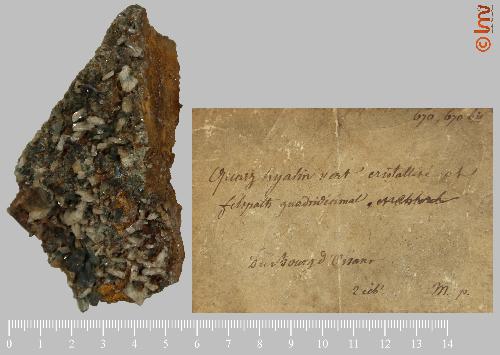 © lmv
670, 670 bis
Quarz hyalin vert cristallisé et
felspath quadridécimal,
Du Bourg d'Oisans
2 éch.ˢ M. p.
0 1 2 3 4 5 6 7 8 9 10 11 12 13 14